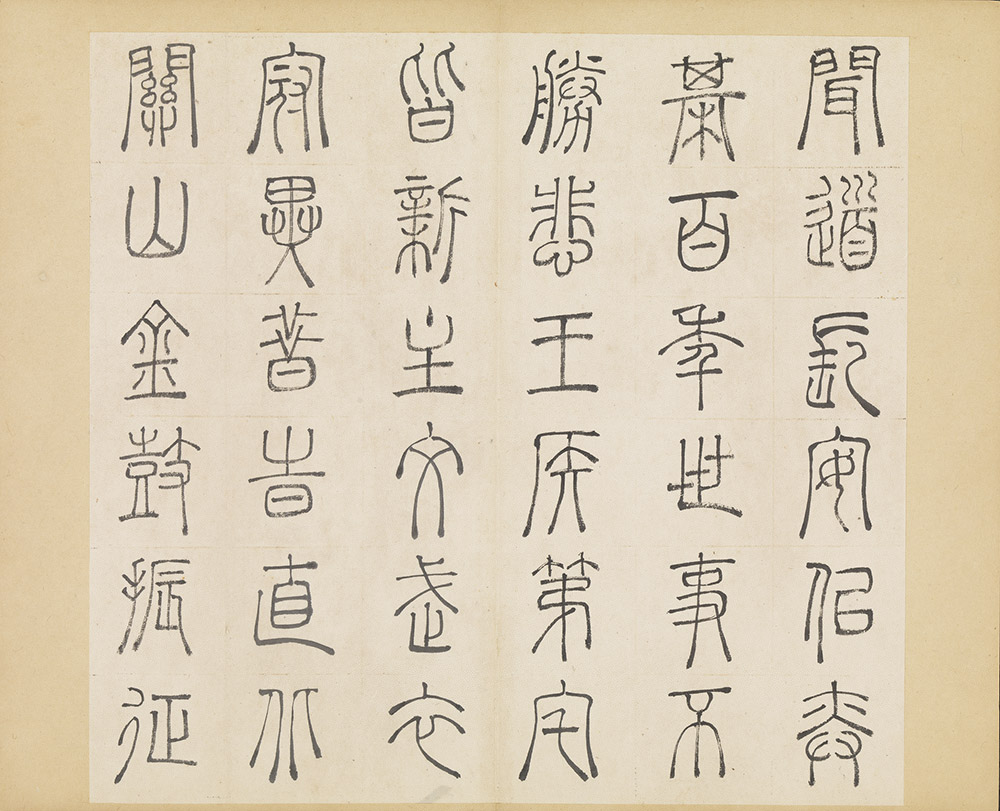 聞道長安似弈
棊百年世事不
勝悲王侯第宅
皆新主文武衣
冠異昔時直北
關山金鼓振征